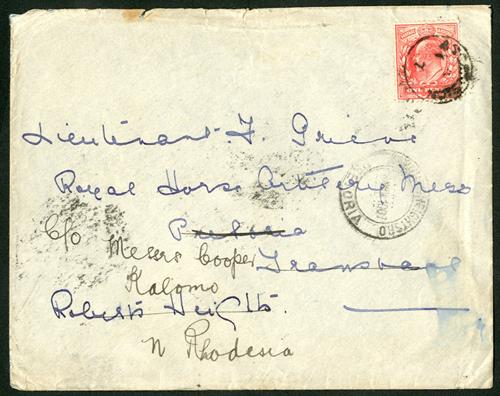 Lieutenant F. Grieve
Royal Horse Artillery Mess
Pretoria
C/o Messrs Cooper Transvaal
Kalomo
Roberts Heights.
N Rhodesia
ONE PENNY
ASC